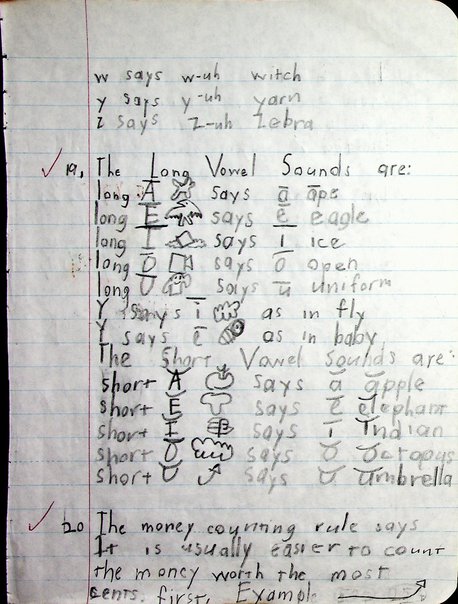 w says w-uh witch
y says y-uh yarn
z says z-uh zebra
19. The Long Vowel Sounds are:
long A says ā āpe
long E says ē eagle
long I says ī ice
long O says ō open
long U says ū uniform
Y says ī as in fly
Y says ē as in baby
The Short Vowel Sounds are:
short A says ă ăpple
short E says ĕ ĕlephant
short I says ĭ Ĭndian
short O says ŏ ŏctopus
short U says ŭ ŭmbrella
20 The money counting rule says
It is usually easier to count
the money worth the most
cents. first. Example